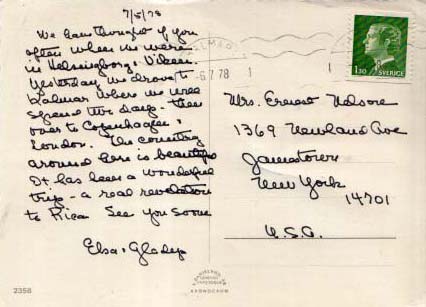 7/5/78
We have thought of you
often when we were
in Helsingborg & Viken.
Yesterday we drove to
Kalmar where we will
spend the day - then
over to Copenhagen &
London. The country
around here is beautiful
It has been a wonderful
trip - a real revelation
to Rica See you soon
Elsa & Gladys
KALMAR
-6.7.78
1.30 SVERIGE
Mrs. Ernest Nelson
1369 Newland Ave
Jamestown
New York
14701
U.S.A.
2358